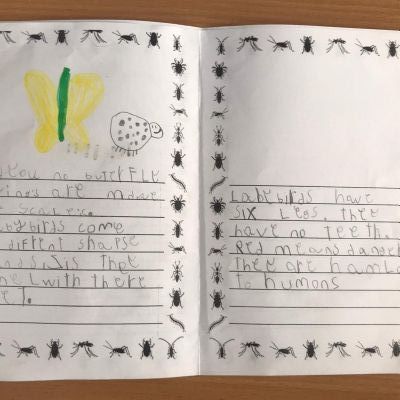 you no butterfle
wings are made
scales.
bybirds come
diffrent shapse
and sis thet
with there
Ladebirds have
six Legs. thee
have no teeth.
Red means danger
thee are
to humons